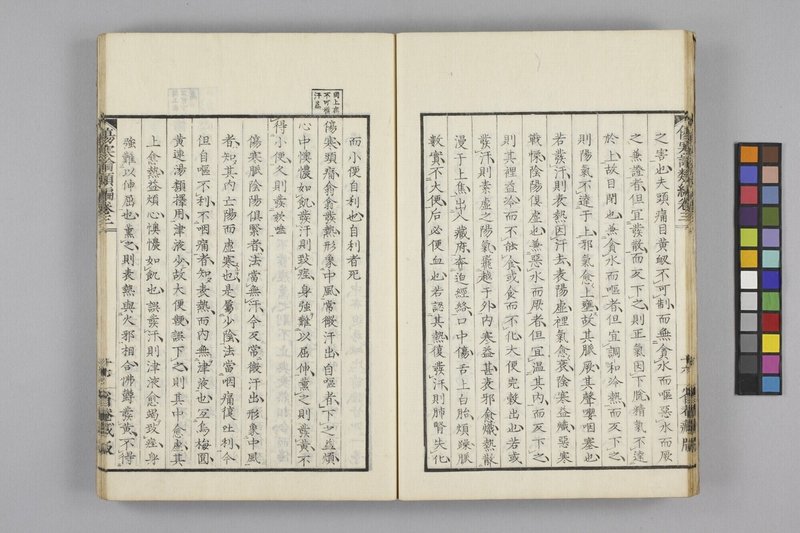 之害也夫頭痛目黃衂不可制而無貪水而嘔惡水而厥
之兼證者但宜發散而反下之則正氣因下脫精氣不達
於上故目閉也無貪水而嘔者但宜調和冷熱而反下之
則陽氣不達于上邪氣愈上壅故其脈厥其聲嚶咽塞也
若發汗則表熱因汗去表陽虛裡氣愈衰陰寒益熾惡寒
戰慄陰陽俱虛也無惡水而厥者但宜溫其內而反下之
則其裡益冷而不能食或食而不化大便完穀出也若或
發汗則素虛之陽氣竄越于外內寒益甚表邪愈熾熱散
漫于上焦出入藏府奔迫經絡口中傷舌上白胎煩躁脈
數實不大便后必便血也若認其熱復發汗則肺腎失化
傷寒論類編卷三
而小便自利也自利者死
傷寒頭痛翕翕發熱形象中風常微汗出自嘔者下之益煩
心中懊憹如飢發汗則致痓身強難以屈伸熏之則發黃不
得小便久則發欬唾
傷寒脈陰陽俱緊者法當無汗今反常微汗出形象中風
者知其內亡陽而虛寒也是爲少陰法當咽痛復吐利今
但自嘔不利不咽痛者知表熱而內無津液也宜烏梅圓
黃連湯類擇用津液少故大便鞕誤下之則其中愈虛其
上愈熱益煩心懊憹如飢也誤發汗則津液愈竭致痓身
強難以伸屈也熏之則表熱與火邪相合怫鬱發黃不得
傷寒論類編卷三